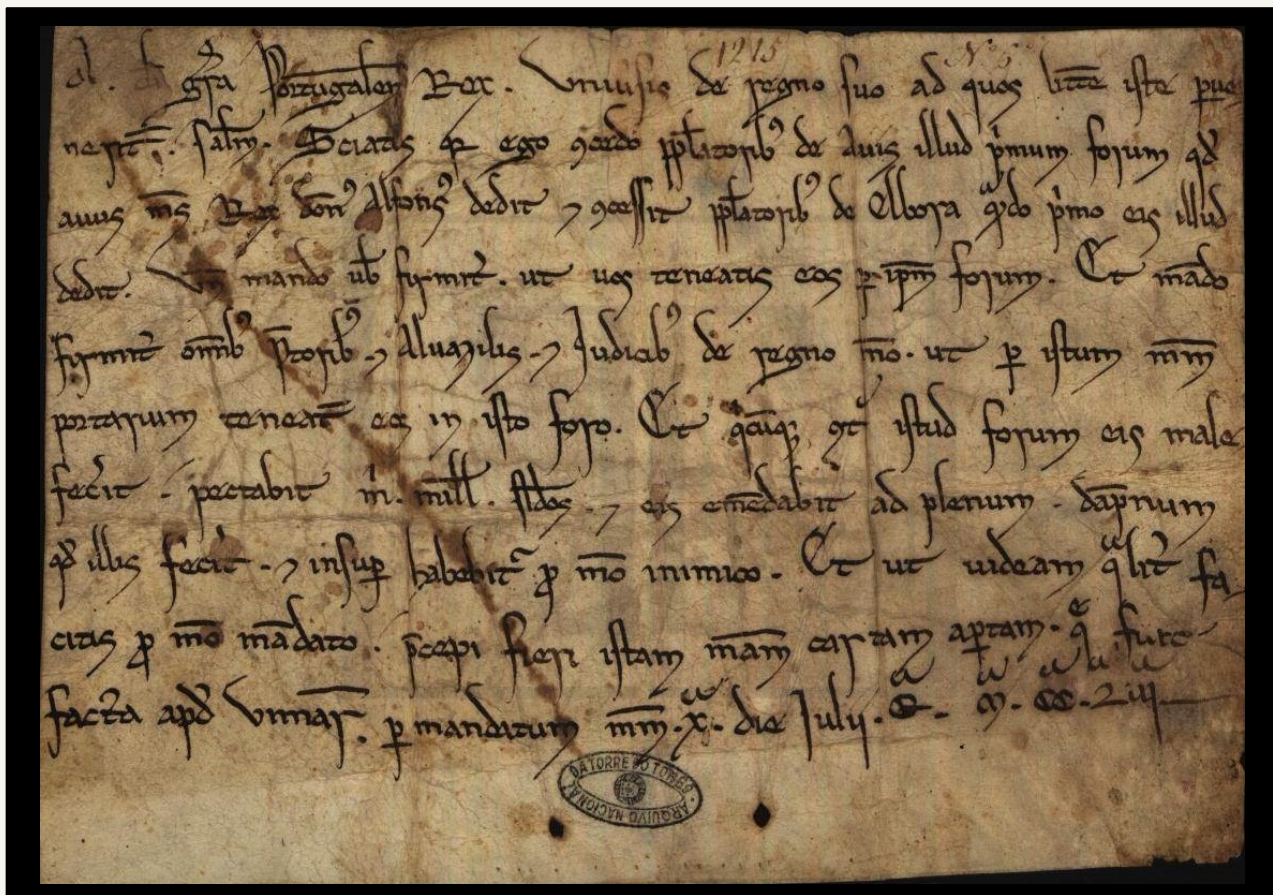 1215 Nº 6
A. di gr̃a Portugaleñ Rex. Vniu̾sis de regno suo ad quos litt̃e iste perue
nerĩt. sal̃m. Sciatis qd̃ ego ꝯcedo ppl̃atorib᷒ de Auis illud p̃mum forum qd̃
auus m̃s Rex don̄᷒ Alfons᷒ dedit ⁊ ꝯcessit ppl̃atorib᷒ de Elbora qᷓdo p̃mo eis illud
dedit. Vñ mando uob̃ firmit̃. ut uos teneatis eos ꝑ ip̃m forum. Et mãdo
firmit̃ om̃ib᷒ p̃torib᷒ ⁊ Aluazilis ⁊ Iudicib᷒ de regno m̃o. ut ꝑ istum m̃m
portarium teneãt eos in isto foro. Et q̾cũqꝫ ꝯt̃ istud forum eis male
fec̃it. pectabit m̃. mill̃. sl̃dos. ⁊ eis em̃edabit ad plenum. dãpnum
qd̃ illis fec̃it. ⁊ insuꝑ habebit᷑ ꝓ m̃o inimico. Et ut uideam qᷓlit̃ fa
citis ꝓ m̃o mãdato. p̃cepi fieri istam m̃am cartam aꝑtam. qͤ fuit
facta apd̃ Vimar̃. ꝑ mandatum m̃m. xͣ. die Iulii. Eͣ. Mͣ. CCͣ. Lͣiiiͣ
ARQUIVO NACIONAL DA TORRE DO TOMBO